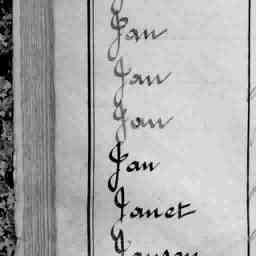 Jan
Jan
Jan
Jan
Janet